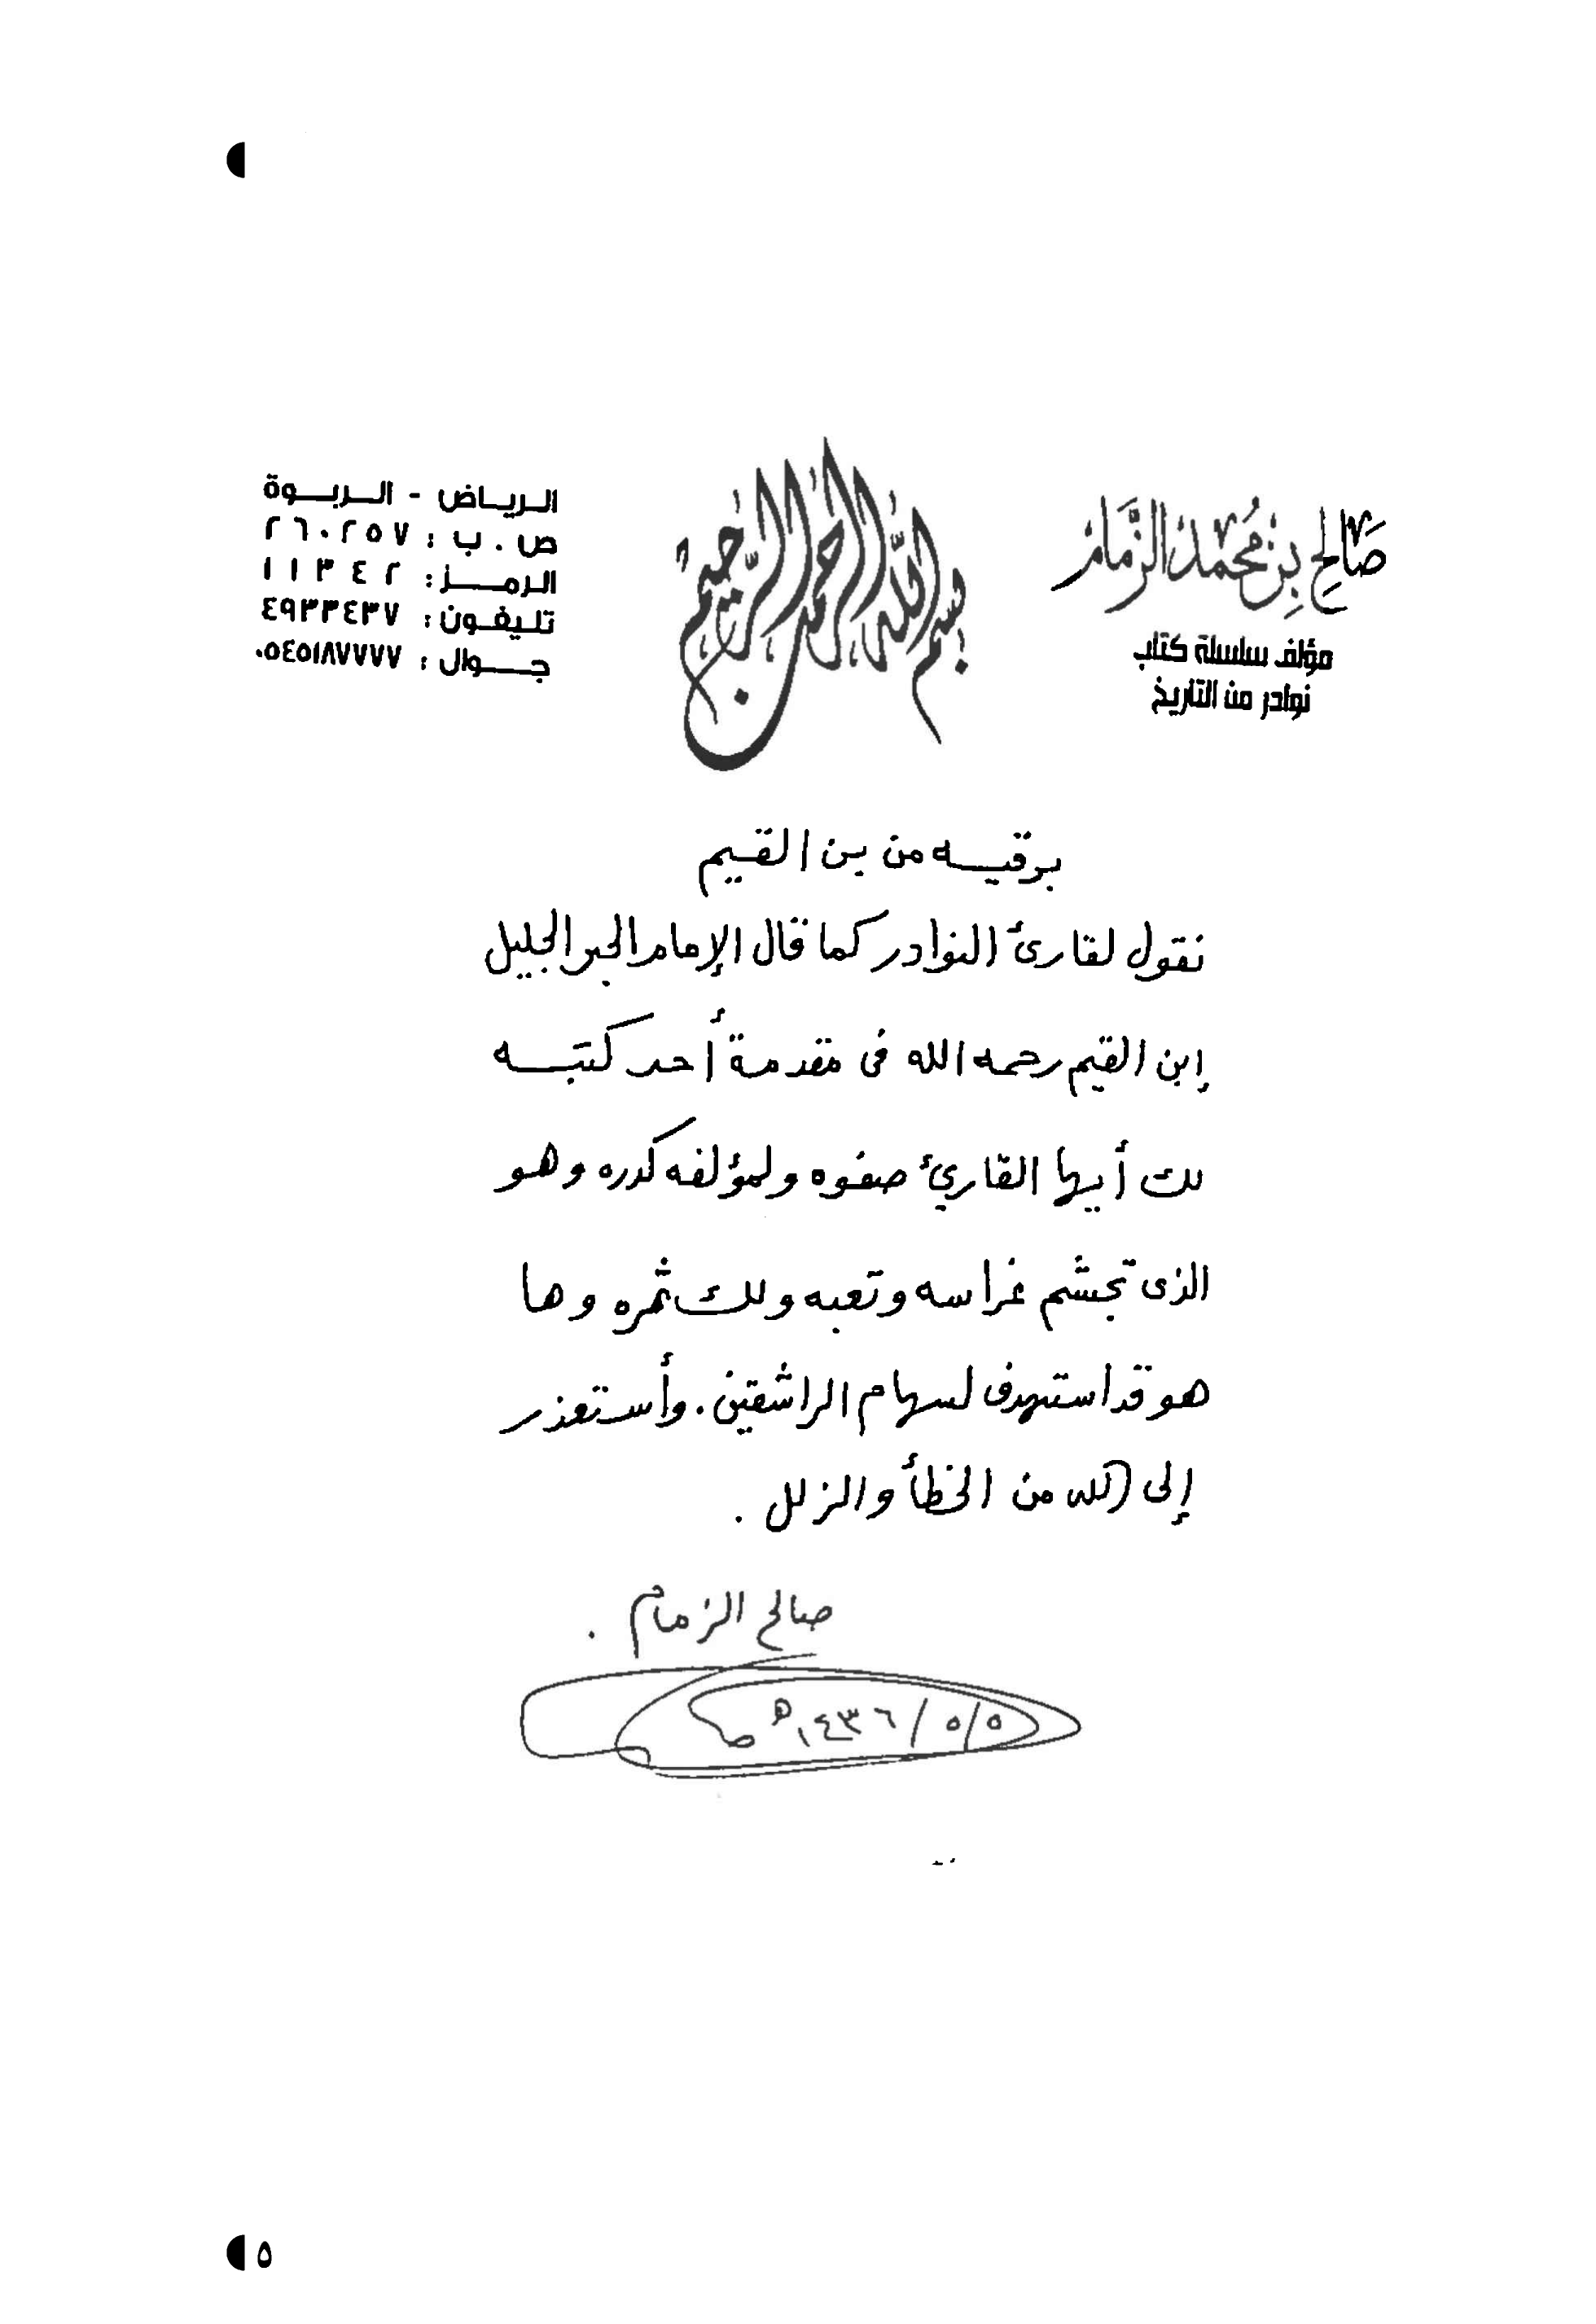 صَالح بِن مُحمد الزَّمام
مؤلف سلسلة كتاب
نوادر من التاريخ
بسم الله الرحمن الرحيم
الريـاض - الـربـوة
ص . ب : ٢٦٠٢٥٧
الرمـــز : ١١٣٤٢
تليفـون : ٤٩٣٣٤٣٧
جـــوال : ٠٥٤٥١٨٧٧٧٧
برقيـــه من بن القيم
نقول لقارئ النوادر كما قال الإمام الحبر الجليل
إبن القيم رحمه الله فى مقدمة أحد كتبـــه
لك أيها القاريء صفوه ولمؤلفه كدره وهو
الذى تجشم غراسه وتعبه ولك ثمره وها
هو قد استهدف لسهام الراشقين . وأستعذر
إلى الله من الخطأ والزلل .
صالح الزمام .
٥/٥/١٤٣٦هـ
٥